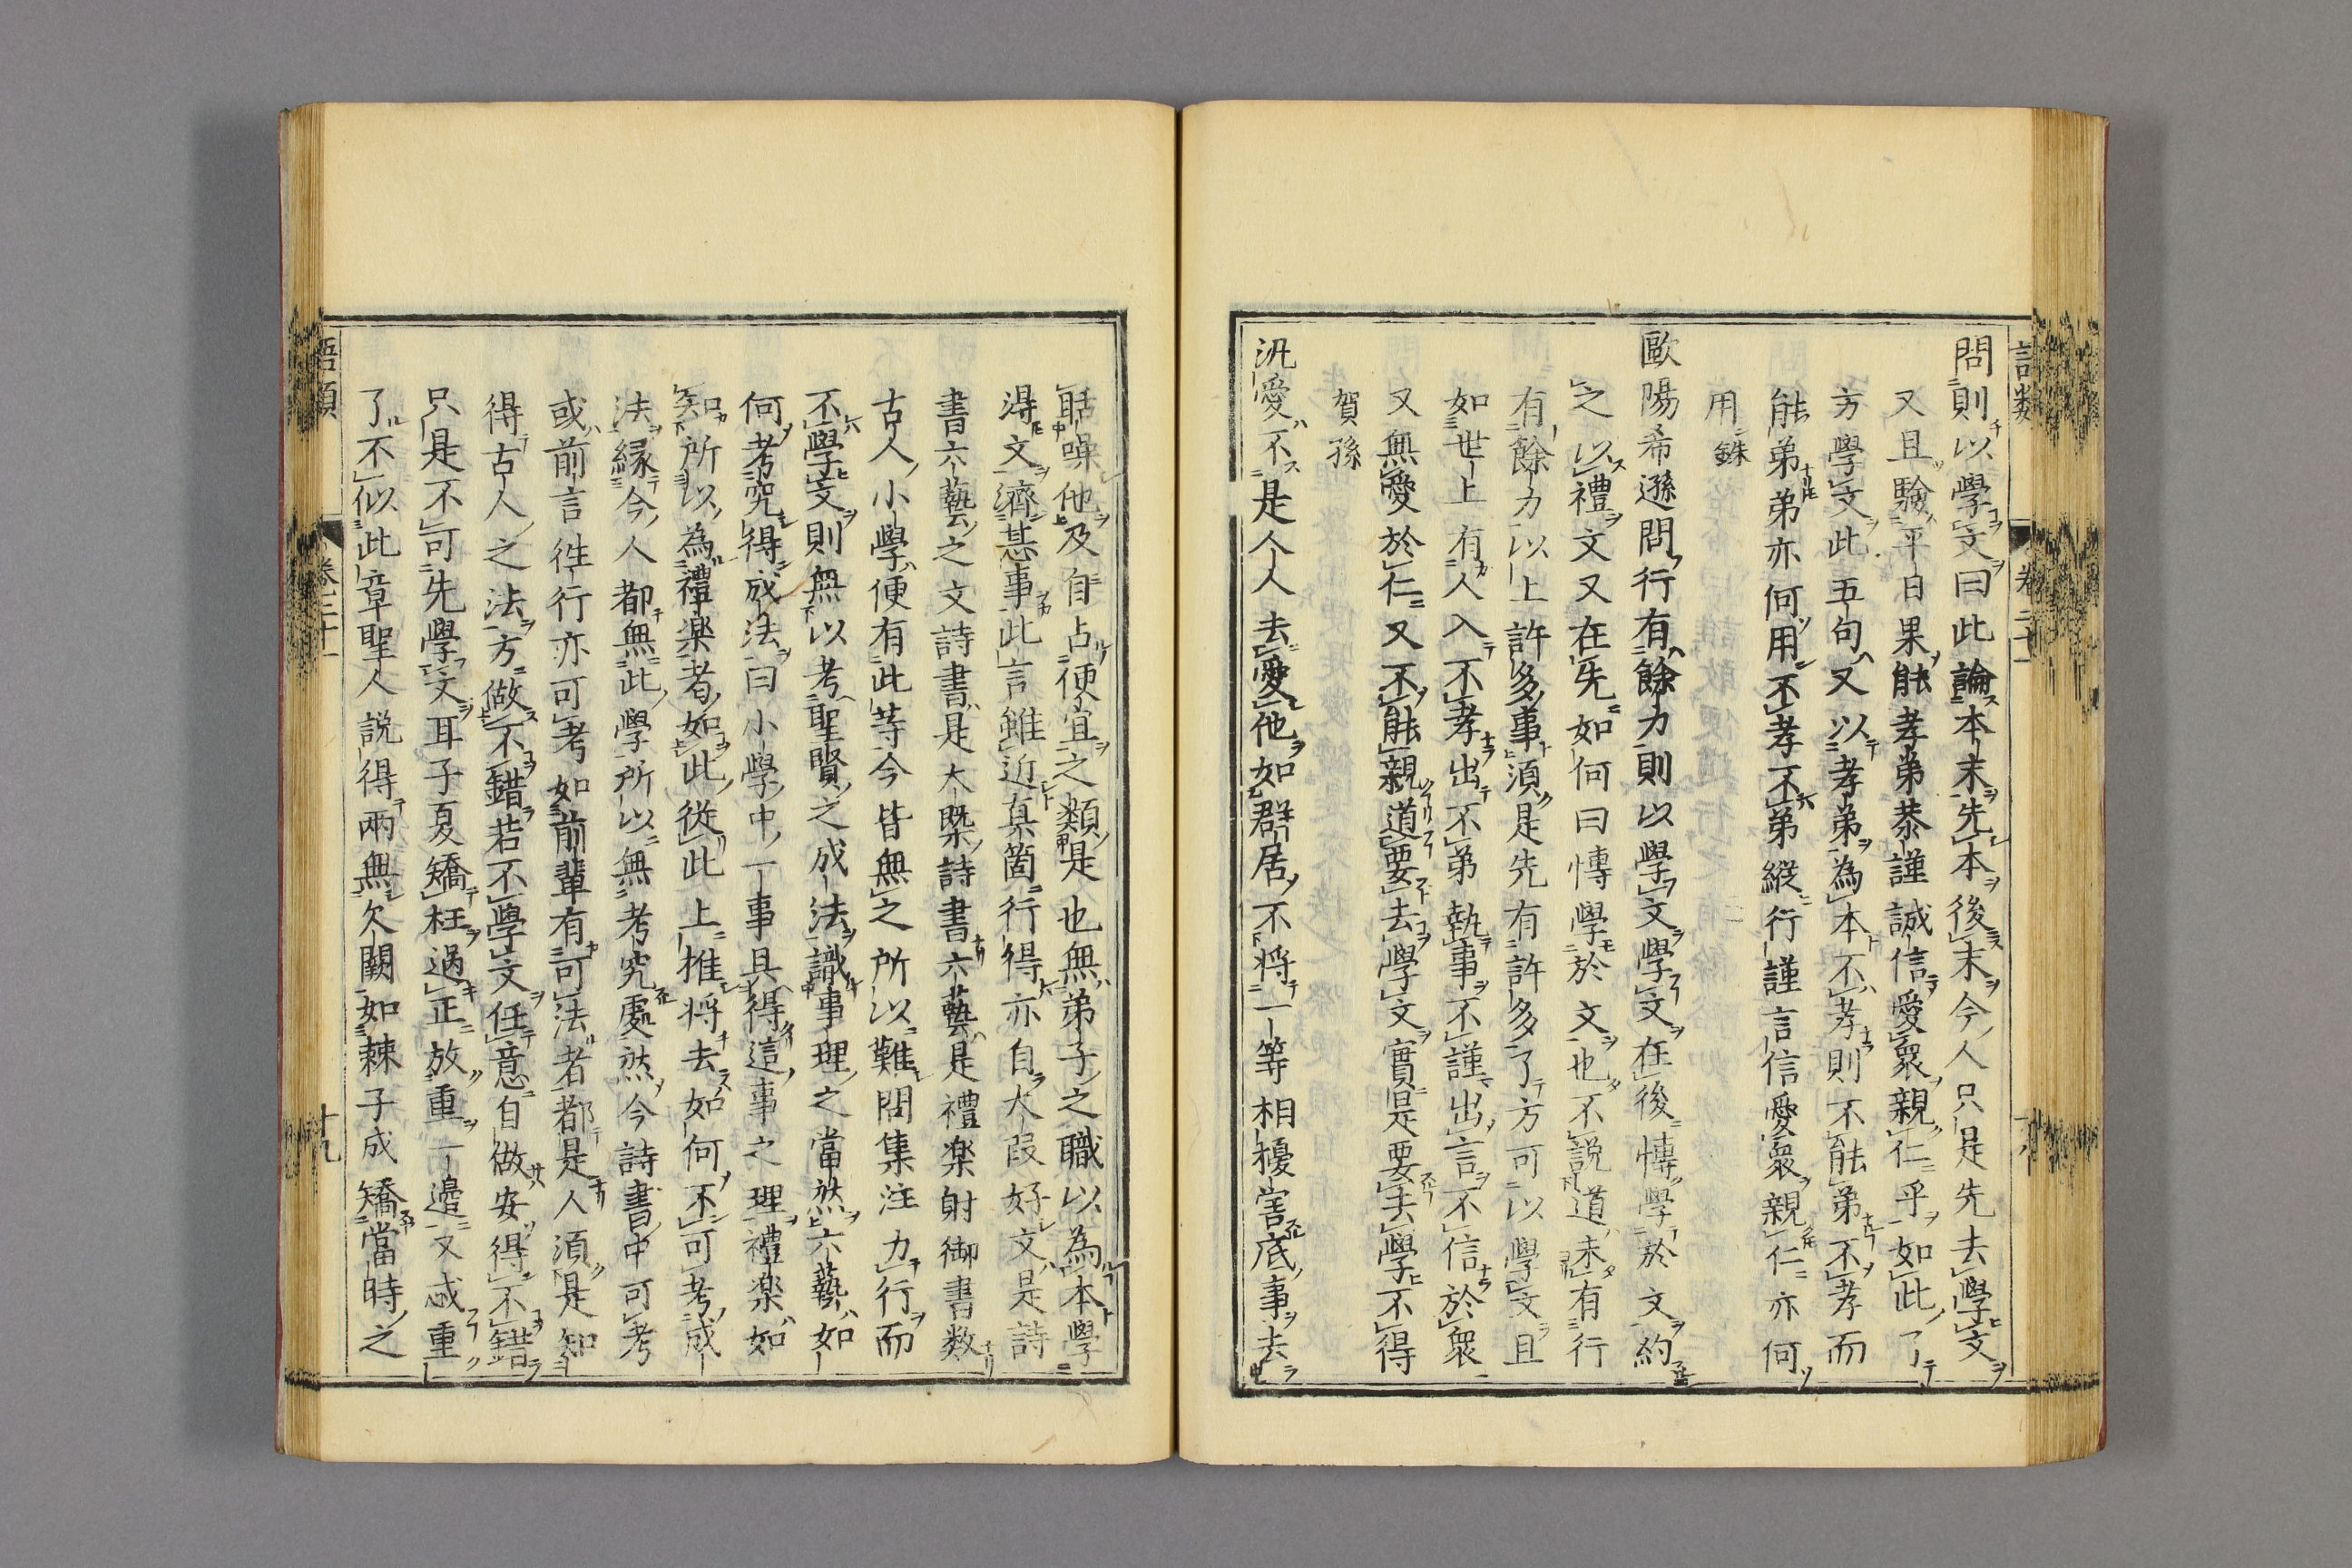 問則以學文曰此論本末先本後末今人只是先去學文
又且驗平日果能孝弟恭謹誠信愛衆親仁乎如此了
方學文此五句又以孝弟為本不孝則不能弟不孝而
能弟弟亦何用不孝不弟縱行謹言信愛衆親仁亦何
用銖
歐陽希遜問行有餘力則以學文學文在後愽學於文約
之以禮文又在先如何曰愽學於文也不說道未有行
有餘力以上許多事湏是先有許多了方可以學文且
如世上有人入不孝出不弟執事不謹出言不信於衆
又無愛於仁又不能親道要去學文實是要去學不得
賀孫
汎愛不是人人去愛他如群居不将一等相擾害底事去
聒噪他及自占便宜之類是也無弟子之職以為本學
淂文濟甚事此言雖近真箇行得亦自大叚好文是詩
書六藝之文詩書是大槩詩書六藝是禮楽射御書数
古人小學便有此等今皆無之所以難問集注力行而
不學文則無以考聖賢之成法識事理之當然六藝如
何考究得成法曰小學中一事具得這事之理禮楽如
知所以為禮楽者如此從此上推将去如何不可考成
法縁今人都無此學所以無考究處然今詩書中可考
或前言徃行亦可考如前輩有可法者都是人湏是知
得古人之法方做不錯若不學文任意自做安得不錯
只是不可先學文耳子夏矯枉過正放重一邊又忒重
了不似此章聖人說得兩無欠闕如棘子成矯當時之
語類
卷二十一
十九